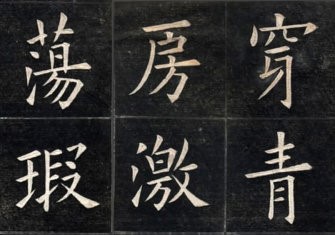 穿青
房激
蕩瑕